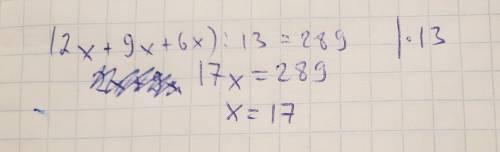 (2x + 9x + 6x) : 13 = 289 | · 13
17x = 289
x = 17